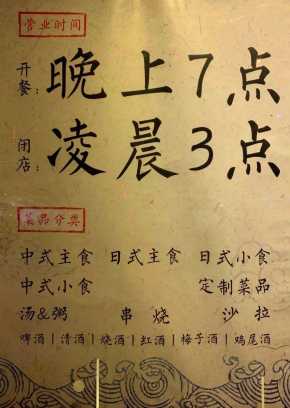 营业时间
开餐：晚上7点
闭店：凌晨3点
菜品分类
中式主食 日式主食 日式小食
中式小食 定制菜品
汤&粥 串烧 沙拉
啤酒|清酒|烧酒|红酒|梅子酒|鸡尾酒